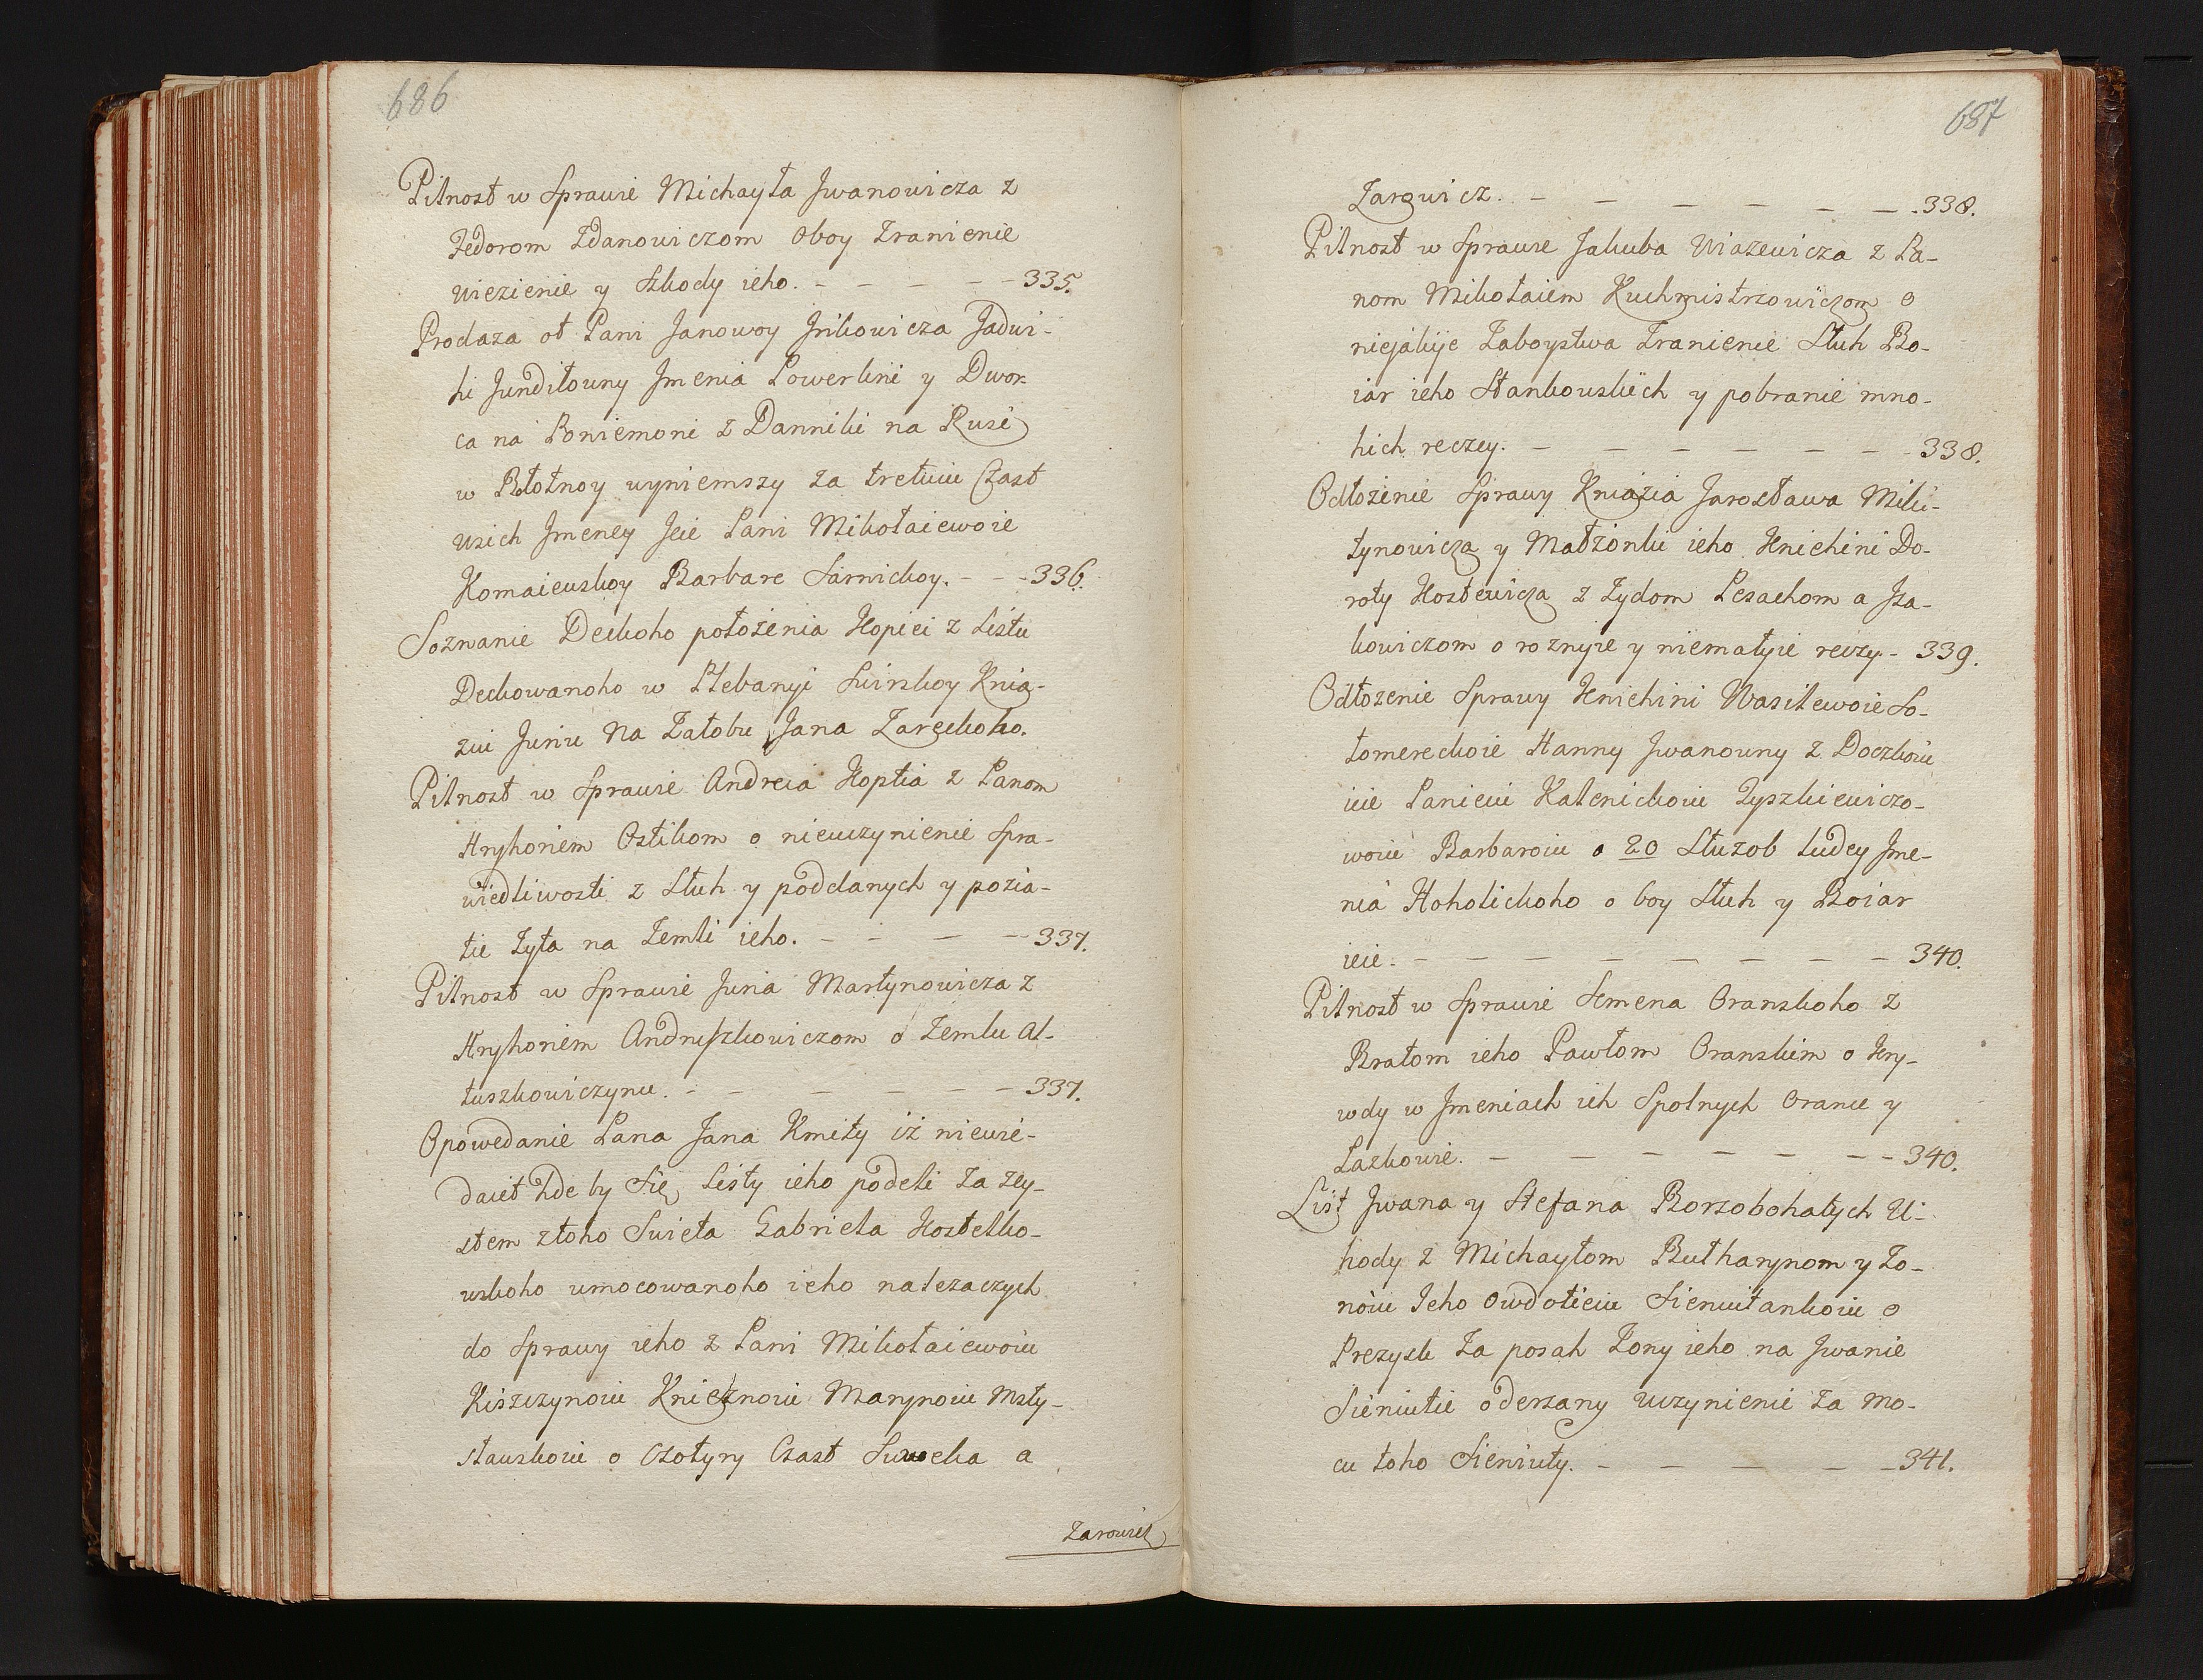 686
Pilnost w Sprawie Michayła Jwanowicza z
Fedorom Zdanowiczom oboy Zranienie
wiezienie y Szkody ieho. - - - - - 335.
Prodaza ot Pani Janowoy Jrikowicza Jadwi-
hi Jundiłowny Jmenia Powerlini y Dwor-
ca na Poniemoni z Danniki na Rusi
w Płotnoy wyniemszy za tretiuiu Czast
wsich Jmeney Jeie Pani Mikołaiewoie
Komaiewskoy Barbare Sarnickoy. - - - 336.
Soznanie Deckoho położenia Kopiei z Listu
Deckowanoho w Plebanyi Swirskoy Knia-
ziu Juriu Na Załobu Jana Zareckoho.
Pilnost w Sprawie Andreia Koptia z Panom
Hryhoriem Ostikom o nieuczynienie Spra-
wiedliwosti z Słuh y poddanych y pozia-
tie Zyta na Zemli ieho. - - - - 337.
Pilnost w Sprawie Juria Martynowicza z
Hryhoriem Andruszkowiczom o Zemlu Al-
tuszkowiczynu. - - - - - - 337.
Opowedanie Pana Jana Kmity iż niewie-
daiet hde by Się Listy ieho podeli za zey-
stem ztoho Swieta Gabriela Kostelko-
wskoho umocowanoho ieho należaczych
do Sprawy ieho z Pani Mikołaiewoiu
Kiszczynoiu Knieznoiu Marynoiu Msty-
sławskoiu o Czotyry Czast Siwelia a
Zarowicz
687
Zarowicz. - - - - - - 338.
Pilnost w Sprawie Jakuba Wiazewicza z Pa-
nom Mikołaiem Kuchmistrzowiczom o
niejakije Zaboystwa Zranienie Słuh Bo-
iar ieho Stankowskich y pobranie mno-
hich reczey. - - - - - - - 338.
Odłożenie Sprawy Kniazia Jarosława Miki-
tynowicza y Małżonki ieho Knichini Do-
roty Kostewicza z Zydom Pesachom a Jza-
kowiczom o roznyie y niemałyie reczy - 339.
Odłozenie Sprawy Knichini Wasilewoie So-
łomereckoie Hanny Jwanowny z Doczkoiu
ieie Panieiu Kalenickoiu Tyszkiewiczo-
woiu Barbaroiu o 20 Słuzob ludey Jme-
nia Hoholickoho o boy Słuh y Boiar
ieie. - - - - - - - - 340.
Pilnost w Sprawie Semena Oranskoho z
Bratom ieho Pawłom Oranskim o kry-
wdy w Jmeniach ich Spolnych Orance y
Laskowie. - - - - - - - 340.
List Jwana y Stefana Borzobohatych U-
hody z Michayłom Butharynom y Zo-
noiu Jeho Owdotieiu Sieniutankoiu o
Prezysk za posah Zony ieho na Jwanie
Sieniutie oderzany uczynienie za mo-
cu toho Sieniuty. - - - - - 341.